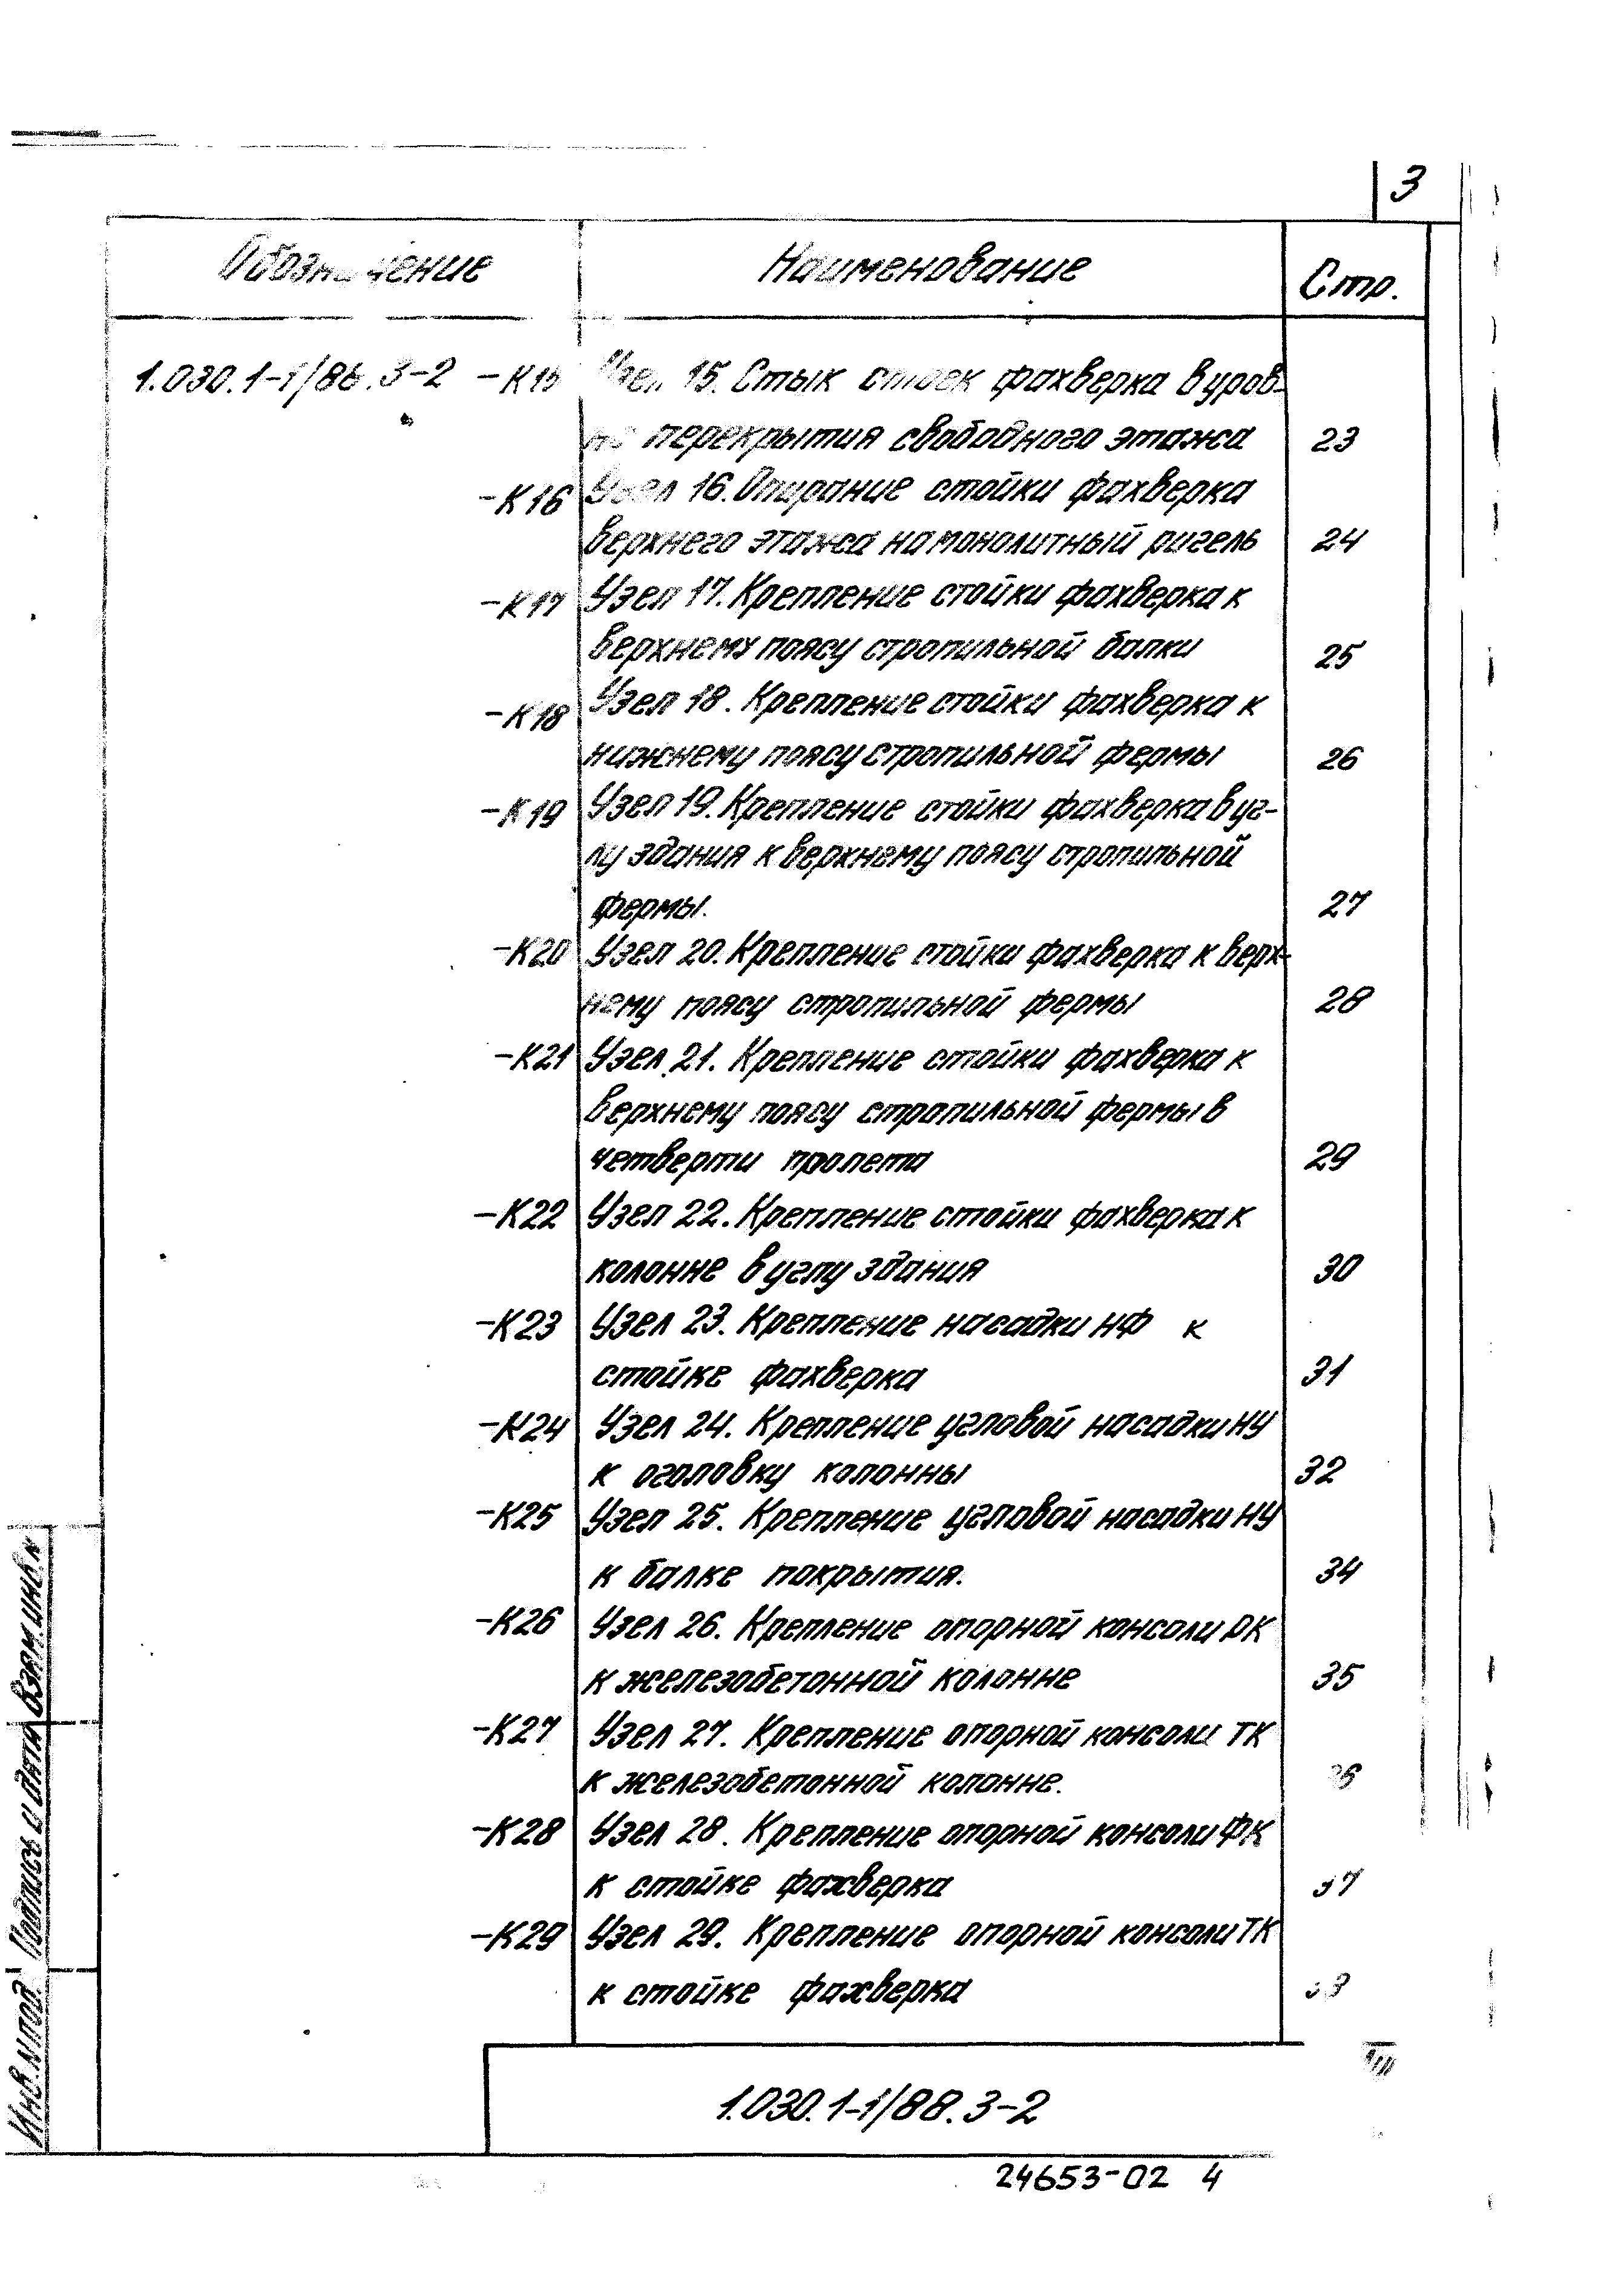 3
Обозначение Наименование Стр.
1.030.1-1/88.3-2 -К15 Узел 15. Стык стоек фахверка в уров-
не перекрытия свободного этажа 23
-К16 Узел 16. Опирание стойки фахверка
верхнего этажа на монолитный ригель 24
-К17 Узел 17. Крепление стойки фахверка к
верхнему поясу стропильной балки 25
-К18 Узел 18. Крепление стойки фахверка к
нижнему поясу стропильной фермы 26
-К19 Узел 19. Крепление стойки фахверка в уг-
лу здания к верхнему поясу стропильной
фермы. 27
-К20 Узел 20. Крепление стойки фахверка к верх-
нему поясу стропильной фермы 28
-К21 Узел 21. Крепление стойки фахверка к
верхнему поясу стропильной фермы в
четверти пролета 29
-К22 Узел 22. Крепление стойки фахверка к
колонне в углу здания 30
-К23 Узел 23. Крепление насадки НФ к
стойке фахверка 31
-К24 Узел 24. Крепление угловой насадки НУ
к оголовку колонны 32
-К25 Узел 25. Крепление угловой насадки НУ
к балке покрытия. 34
-К26 Узел 26. Крепление опорной консоли РК
к железобетонной колонне 35
-К27 Узел 27. Крепление опорной консоли ТК
к железобетонной колонне. 36
-К28 Узел 28. Крепление опорной консоли ФК
к стойке фахверка 37
-К29 Узел 29. Крепление опорной консоли ТК
к стойке фахверка
1.030.1-1/88.3-2
24653-02 4
Инв.N под. Подпись и дата Взам.инв.N